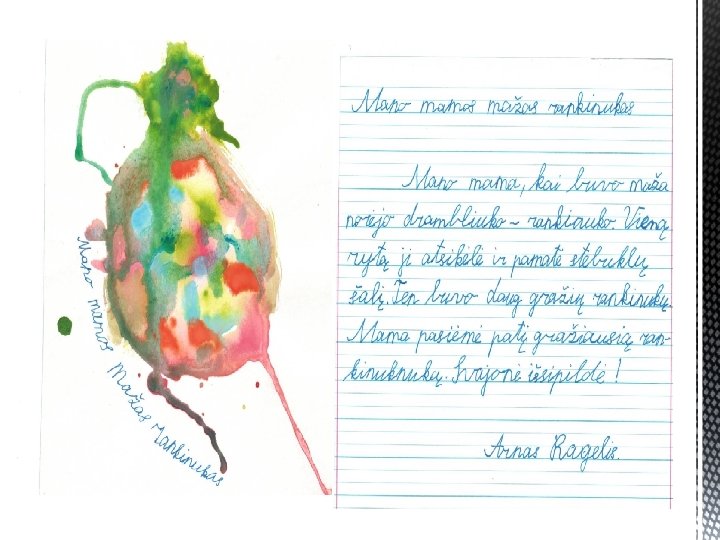 Mano mamos mažas rankinukas
Mano mamos mažas rankinukas
Mano mama, kai buvo maža
norėjo drambliuko - rankiauko. Vieną
rytą ji atsikėlė ir pamatė stebuklų
šalį. Ten buvo daug gražių rankinukų.
Mama pasiėmė patį gražiausią ran-
kinuknuką. Svajonė išsipildė!
Arnas Ragelis.